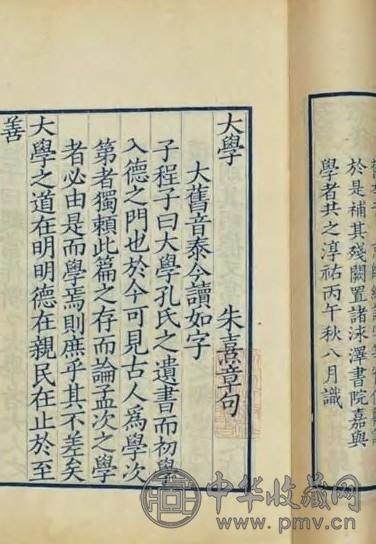 於是補其殘闕置諸泳澤書院嘉與
學者共之淳祐丙午秋八月識
大學 朱熹章句
大舊音泰今讀如字
子程子曰大學孔氏之遺書而初學
入德之門也於今可見古人爲學次
第者獨賴此篇之存而論孟次之學
者必由是而學焉則庶乎其不差矣
大學之道在明明德在親民在止於至
善
中华收藏网
www.pmv.cn